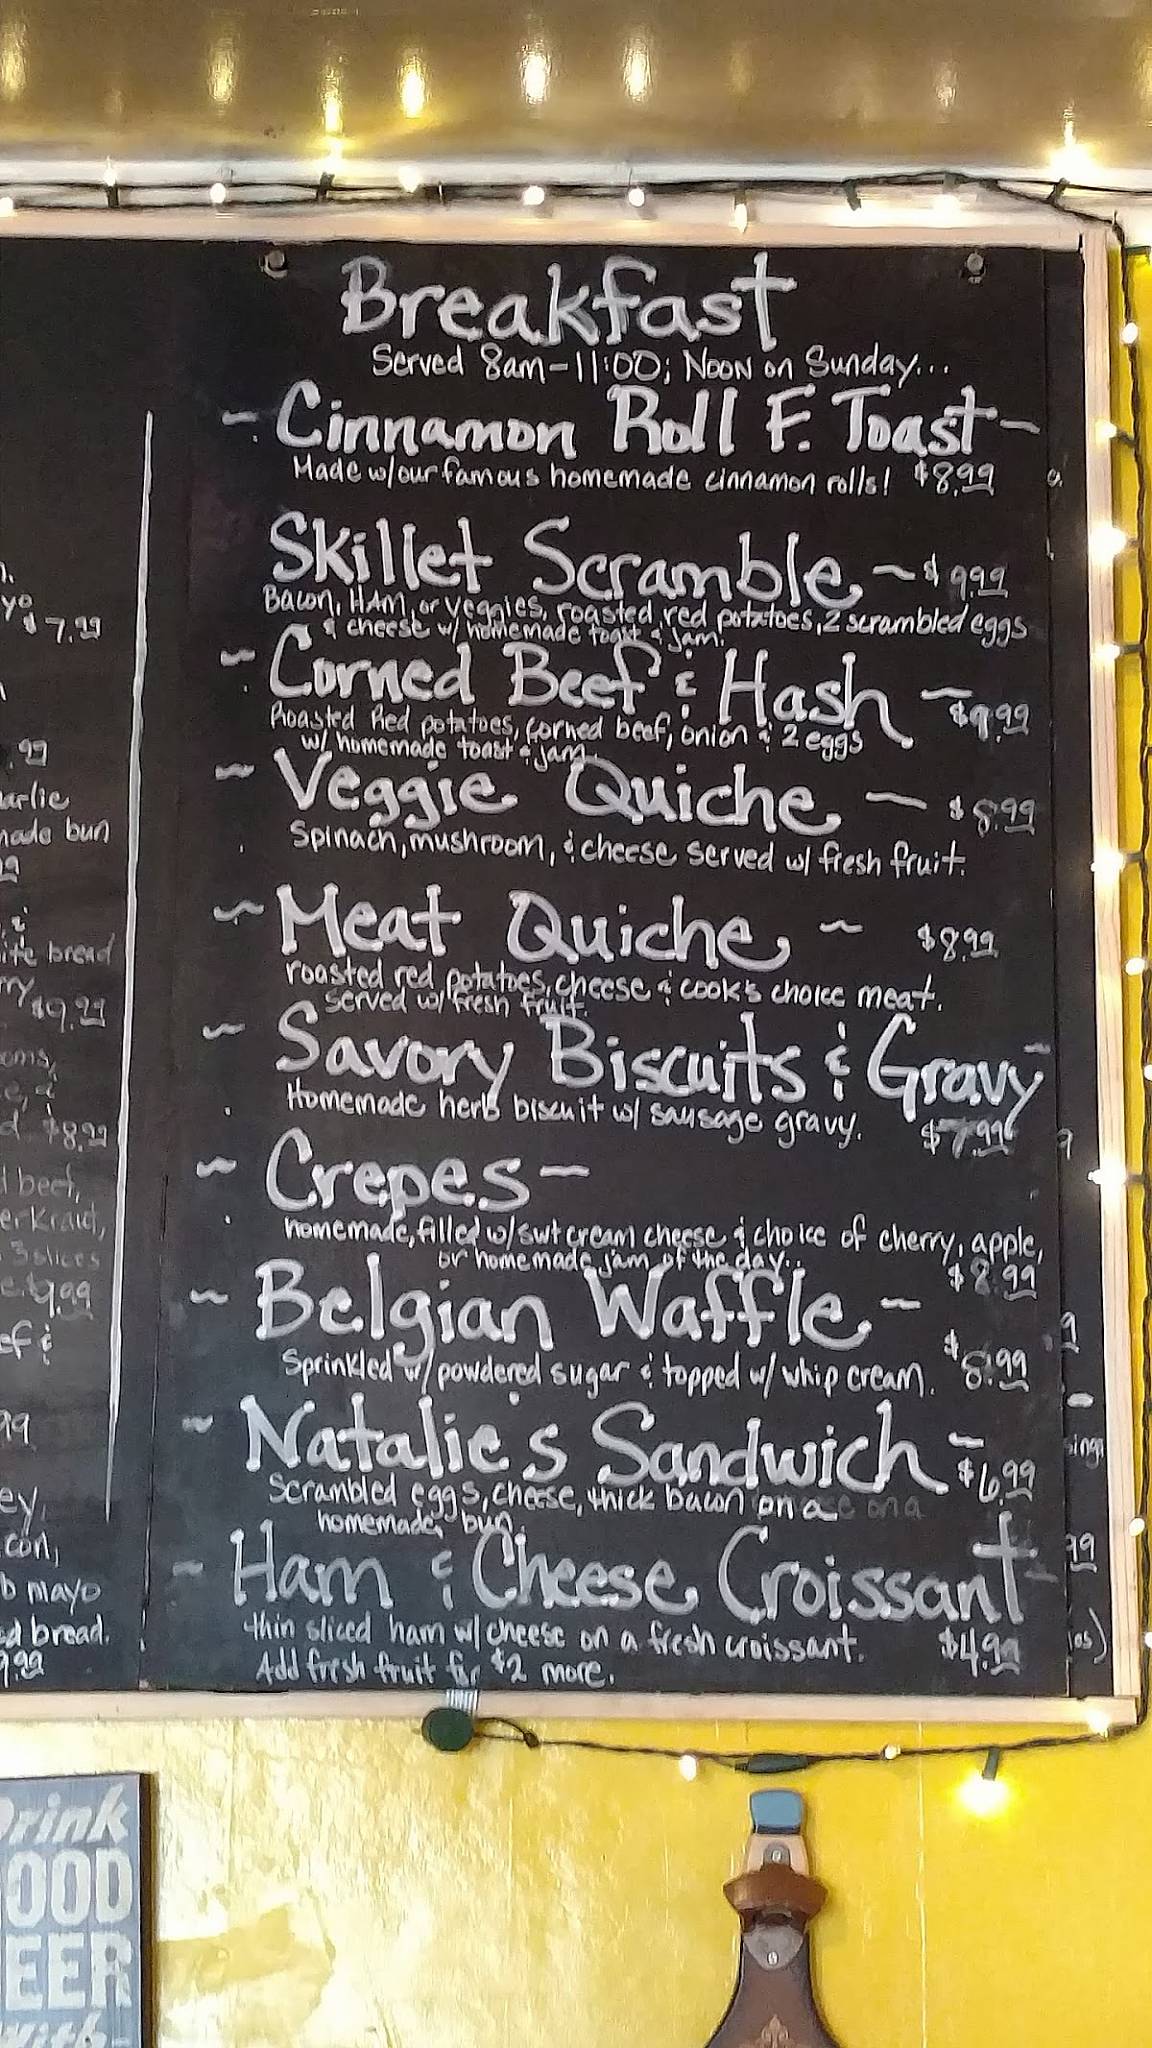 Breakfast
Served 8am-11:00; Noon on Sunday...
~ Cinnamon Roll F. Toast ~
Made w/our famous homemade cinnamon rolls! $8.99
Skillet Scramble ~ $9.99
Bacon, HAM, or veggies, roasted red potatoes, 2 scrambled eggs
& cheese w/ homemade toast & jam.
~ Corned Beef & Hash ~ $9.99
Roasted Red potatoes, corned beef, onion & 2 eggs
w/ homemade toast & jam
~ Veggie Quiche ~ $8.99
Spinach, mushroom, & cheese served w/ fresh fruit.
~ Meat Quiche ~ $8.99
roasted red potatoes, cheese & cook's choice meat.
Served w/ fresh fruit.
~ Savory Biscuits & Gravy ~
Homemade herb biscuit w/ sausage gravy. $7.99
~ Crepes ~
homemade, filled w/ swt cream cheese & choice of cherry, apple,
or homemade jam of the day.. $8.99
~ Belgian Waffle ~
Sprinkled w/ powdered sugar & topped w/ whip cream. $8.99
~ Natalie's Sandwich ~ $6.99
Scrambled eggs, cheese, thick bacon on a
homemade bun.
~ Ham & Cheese Croissant ~
thin sliced ham w/ cheese on a fresh croissant. $4.99
Add fresh fruit for $2 more.
yo
$7.99
.99
arlie
made bun
ite bread
$9.99
oms,
$8.99
beef,
erkraut,
3 slices
9.99
ef &
99
ey,
con,
b mayo
ed bread.
9.99
Drink
OOD
EER
With-